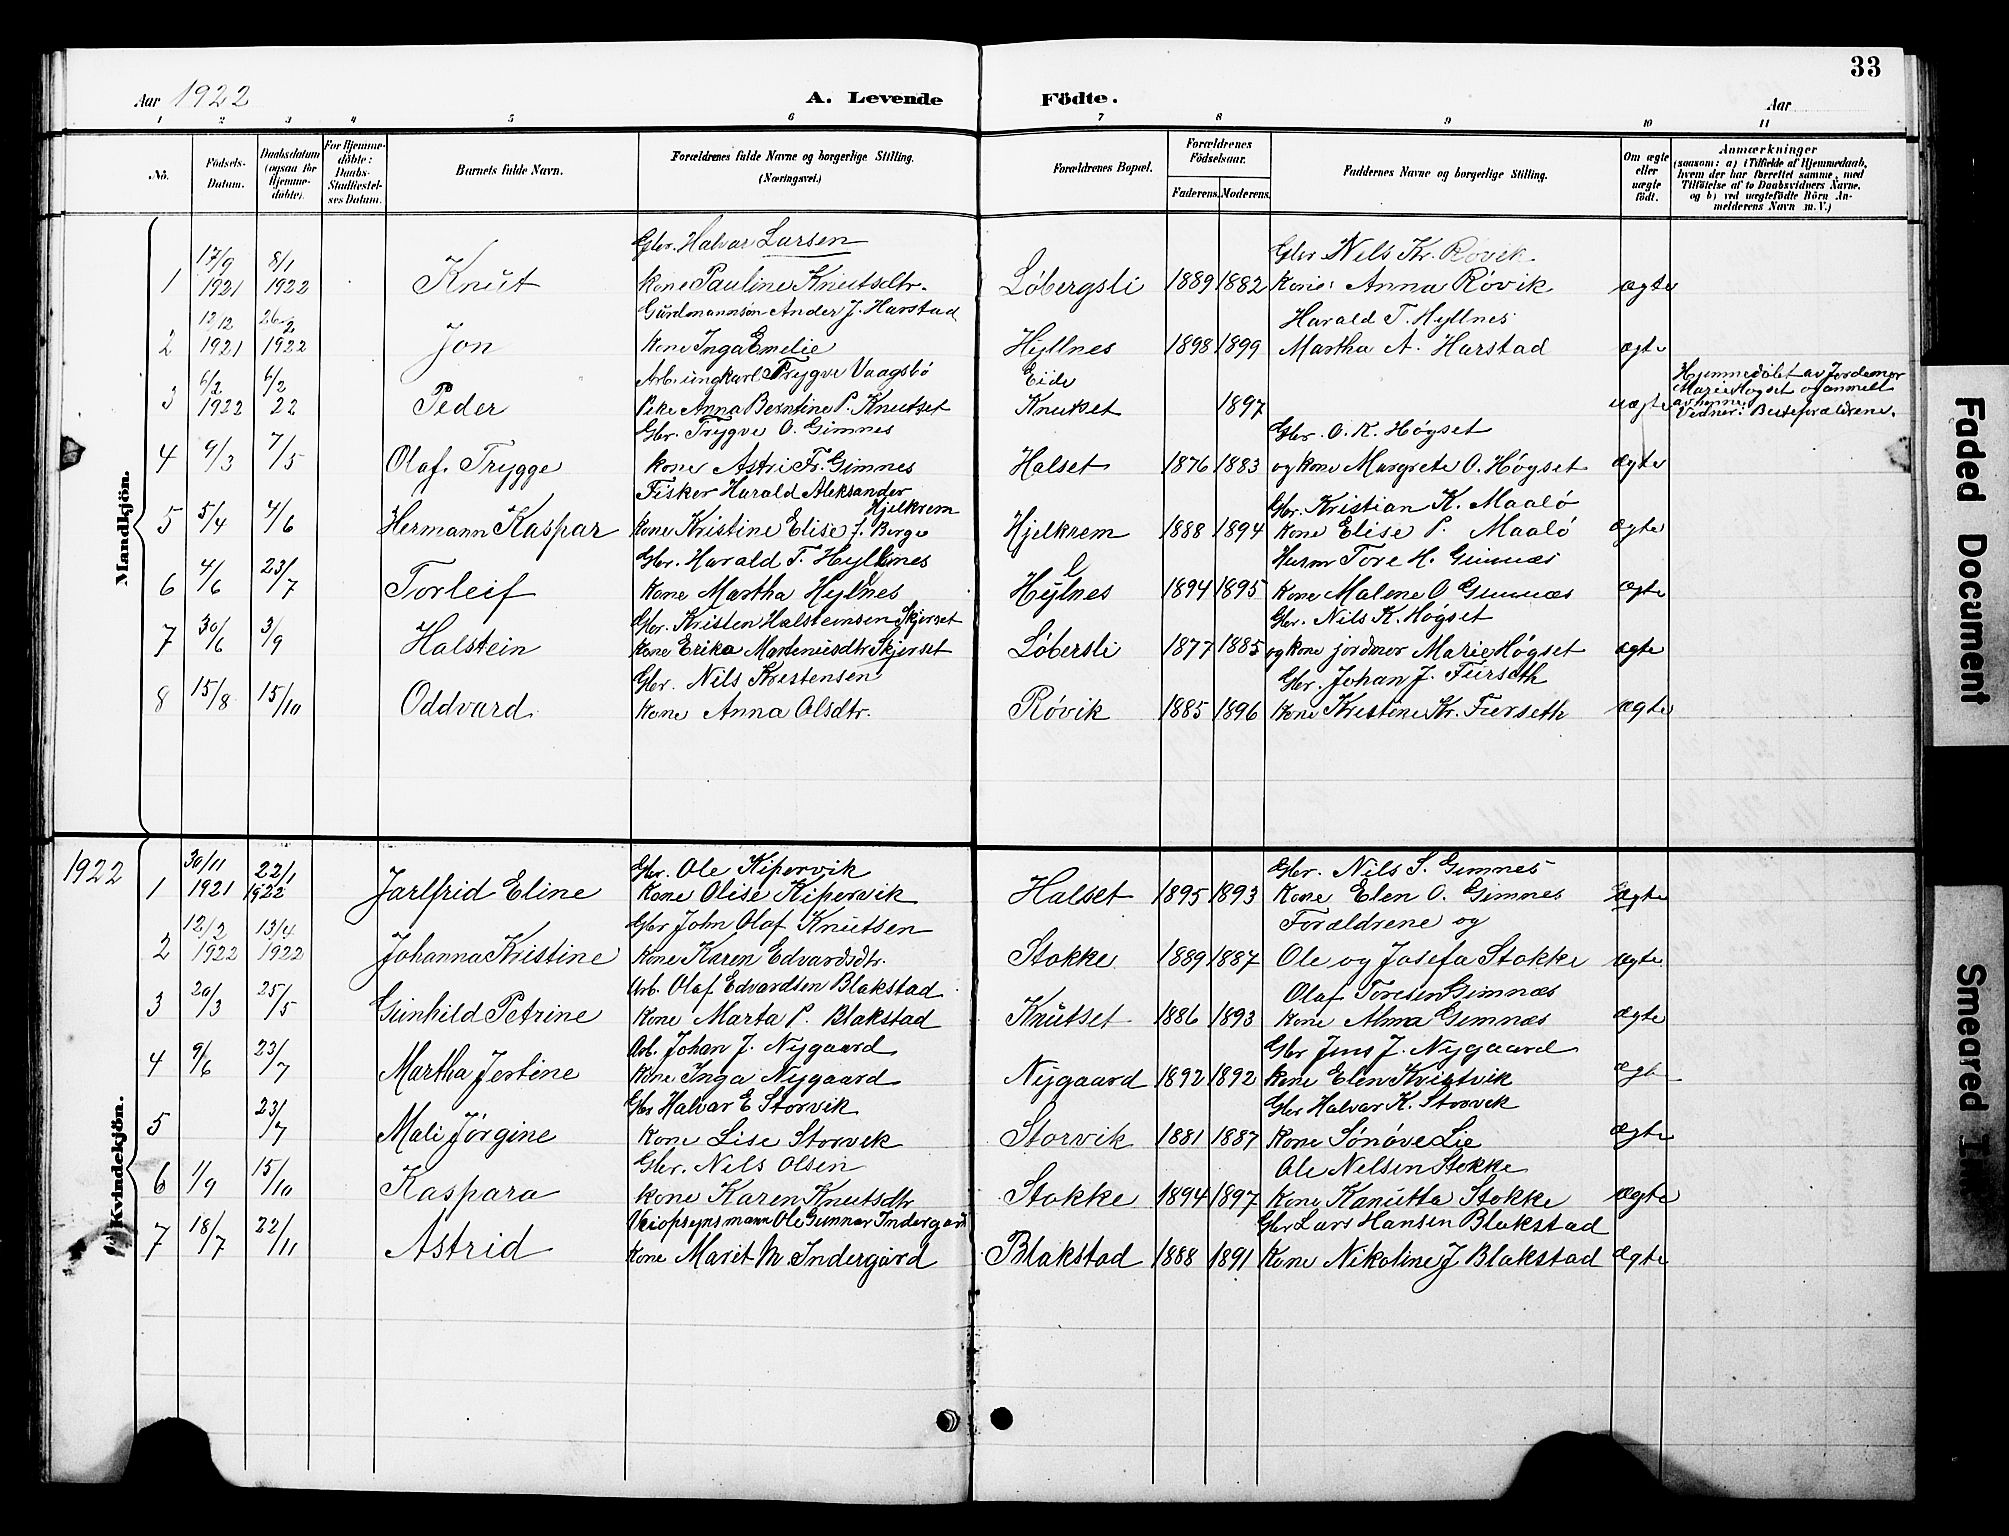 33
Aar 1922
A. Levende
Födte.
Aar
1 2 3 4 5 6 7 8 9 10 11
No.
Födsels-
Datum.
Daabsdatum
(ogsaa for
Hjemme-
döbte).
For Hjemme-
döbte:
Daabs-
Stadfæstel-
ses Datum.
Barnets fulde Navn.
Forældrenes fulde Navne og borgerlige Stilling.
(Næringsvei.)
Forældrenes Bopæl.
Forældrenes
Födselsaar.
Faderens. Moderens.
Faddernes Navne og borgerlige Stilling.
Om ægte
eller
uægte
födt.
Anmærkninger
(saasom: a) i Tilfælde af Hjemmedaab,
hvem der har forrettet samme, med
Tilföielse af to Daabsvidners Navne,
og b) ved uægtefödte Börn An-
melderens Navn m. V.)
Mandkjön.
17/9 8/1 Gbr. Halvar Larsen Gbr Nils Kr. Røvik
1 1921 1922 Knut kone Pauline Knutsdtr. Løbergsli 1889 1882 kone Anna Røvik ægte
12/12 26/2 Gårdmannsøn Ander J. Harstad Harald T. Hyllnes
2 1921 1922 Jon kone Inga Emelie Hyllnes 1898 1899 Martha A. Harstad ægte
6/2 6/2 Arb. ungkarl Trygve Vaagsbö Eide Hjemmedøbt av Jordemor
3 1922 22 Peder Pike Anna Berntine P. Knutset Knutset 1897 uægte Marie Høgset og anmelt
av henne.
Vidner: Besteforældrene.
Gbr. Trygve O. Gimnes Gbr. O. K. Høgset
4 9/3 7/5 Olaf Trygge kone Astri Fr. Gimnes Halset 1876 1883 og kone Margrete O. Høgset ægte
Fisker Harald Aleksander Hjelkrem Gbr. Kristian K. Maalö
5 5/4 4/6 Hermann Kaspar kone Kristine Elise f. Berge Hjelkrem 1888 1894 kone Elise P. Maalö ægte
Gbr. Harald T. Hyllnes Husm Tore H. Gimnæs
6 4/6 23/7 Torleif kone Martha Hyllnes Hyllnes 1894 1895 kone Malene O Gimnæs ægte
Gbr. Kristen Halsteinsen Skjerset Gbr. Nils K. Høgset
7 30/6 3/9 Halstein kone Erika Marteniusdtr Skjerset Løbersli 1877 1885 og kone jordmor Marie Høgset ægte
Gbr. Nils Kristensen Gbr. Johan J. Furseth
8 15/8 15/10 Oddvard kone Anna Olsdtr. Røvik 1885 1896 kone Kristine Kr. Furseth ægte
Kvindekjön.
1922 30/11 22/1 Gbr. Ole Kipervik Gbr. Nils S. Gimnes
1 1921 1922 Jarlfrid Eline Kone Olise Kipervik Halset 1895 1893 Kone Elen O. Gimnes ægte
12/2 13/4 Gbr John Olaf Knutsen Forældrene og
2 1922 1922 Johanna Kristine Kone Karen Edvardsdtr. Stokke 1889 1887 Ole og Josefa Stokke ægte
Arb. Olaf Edvardsen Blakstad Olaf Toresen Gimnæs
3 20/3 25/5 Gunhild Petrine kone Marta P. Blakstad Knutset 1886 1893 kone Alma Gimnæs ægte
Arb. Johan J. Nygaard Gbr Jens J. Nygaard
4 9/6 23/7 Martha Jertine kone Inga Nygaard Nygaard 1892 1892 kone Elen Kvistvik ægte
Gbr Halvar E Storvik Gbr Halvar K. Storvik
5 23/7 Mali Jörgine Kone Lise Storvik Storvik 1881 1887 kone Sönöve Lie ægte
Gbr. Nils Olsen Ole Nelsen Stokke
6 1/9 15/10 Kaspara kone Karen Knutsdtr Stokke 1894 1897 kone Kanutta Stokke ægte
Veiopsynsmann Ole Gunnar Indergård Gbr Lars Hansen Blakstad
7 18/7 22/11 Astrid kone Marit M. Indergård Blakstad 1888 1891 Kone Nikoline J Blakstad ægte
Faded Document
Smeared Ink